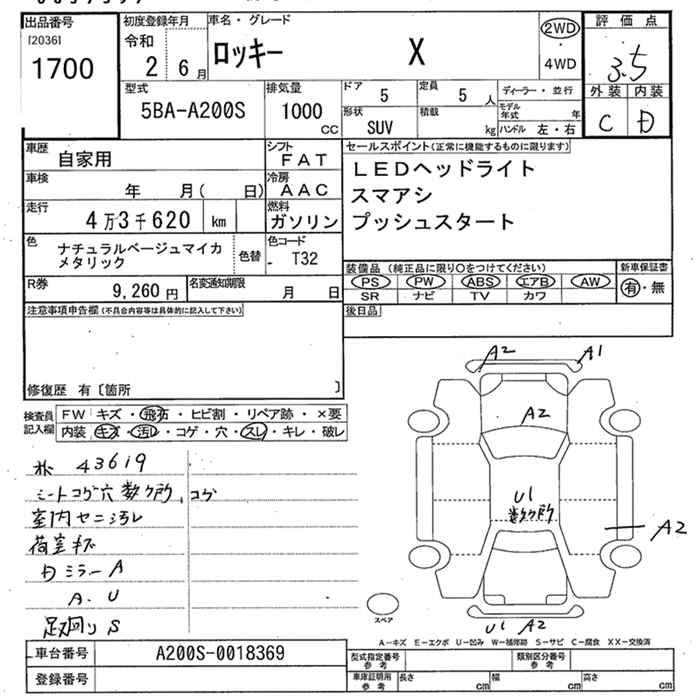 出品番号
[2036]
1700
初度登録年月
令和
2 年 6 月
車名・グレード
ロッキー X
2WD
・
4WD
評価点
3.5
外装 内装
C D
型式
5BA-A200S
排気量
1000
cc
ドア
5
定員
5 人
ディーラー・並行
形状
SUV
積載
kg
モデル年式 年
ハンドル 左・右
車歴
自家用
シフト
FAT
車検
年 月( 日)
冷房
AAC
走行
4万3千620 km
燃料
ガソリン
色
ナチュラルベージュマイカ
メタリック
色替
色コード
- T32
R券
9,260 円
名変通知期限
月 日
セールスポイント(正常に機能するものに限ります)
LEDヘッドライト
スマアシ
プッシュスタート
装備品 (純正品に限り○をつけてください)
PS PW ABS エアB AW
SR ナビ TV カワ
新車保証書
有・無
後日品
注意事項申告欄(不具合内容等は具体的に記入して下さい)
修復歴 有〔箇所 〕
検査員
記入欄
FW キズ・飛石・ヒビ割・リペア跡・×要
内装 キズ・汚レ・コゲ・穴・スレ・キレ・破レ
43619
シートコゲ穴数ヶ所、コゲ
室内セニ汚レ
荷室キズ
ミラーA
A、U
足廻りS
A2 A1
A2
U1
数ヶ所
A2
U1 A2
スペア
A―キズ E―エクボ U―凹み W―補修跡 S―サビ C―腐食 XX―交換済
車台番号
A200S-0018369
登録番号
型式指定番号
参考
類別区分番号
参考
車庫証明用
参考
長さ cm 幅 cm 高さ cm